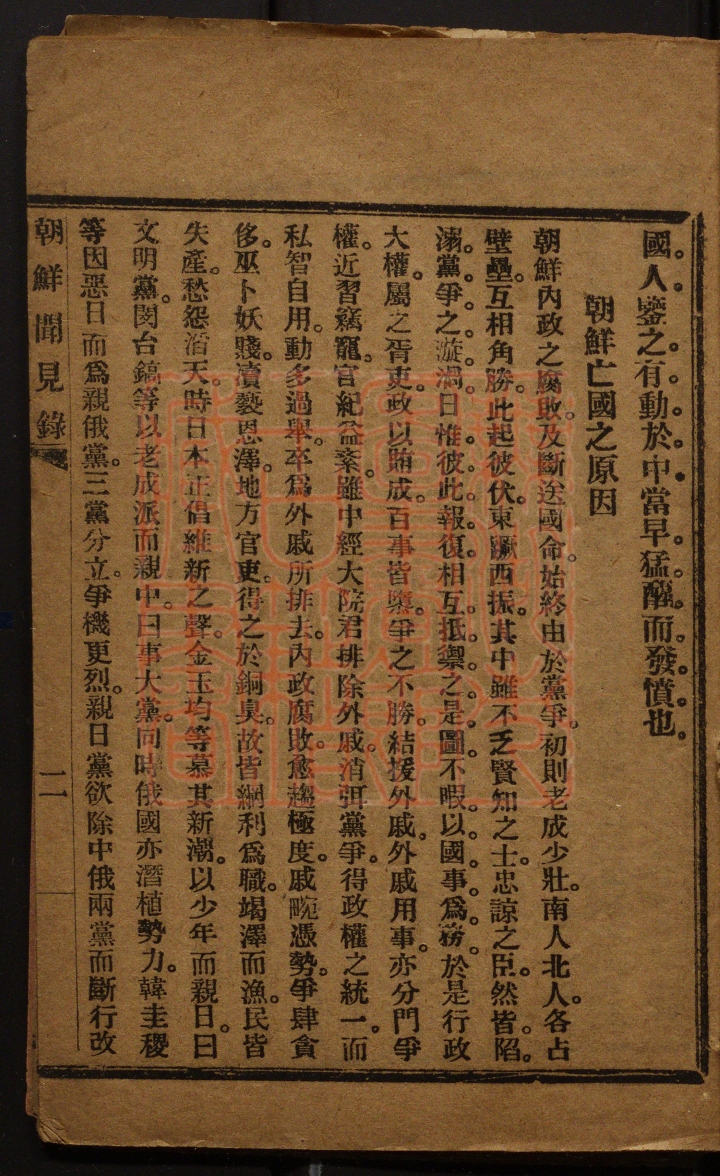 國人鑒之有動於中當早猛醒而發憤也。
朝鮮亡國之原因
朝鮮內政之腐敗。及斷送國命。始終由於黨爭。初則老成少壯。南人北人。各占
壁壘。互相角勝。此起彼伏。東蹶西振。其中雖不乏賢知之士。忠諒之臣。然皆陷。
溺。黨。爭。之。漩。渦。日惟彼此報復。相互抵禦之。是。圖。不。暇。以。國。事。爲。務。於是行政
大權。屬之胥吏。政以賄成。百事皆隳。爭之不勝。結援外戚。外戚用事。亦分門爭
權。近習竊寵。官紀益紊。雖中經大院君排除外戚。消弭黨爭。得政權之統一。而
私智自用。動多過舉。卒爲外戚所排去。內政腐敗。愈趨極度。戚畹憑勢。爭肆貪
侈。巫卜妖賤。瀆褻恩澤。地方官吏。得之於銅臭。故皆網利爲職。竭澤而漁。民皆
失產。愁怨滔天。時日本正倡維新之聲。金玉均等慕其新潮。以少年而親日。曰
文明黨。閔台鎬等以老成派而親中。曰事大黨。同時俄國亦潛植勢力。韓圭稷
等因惡日而爲親俄黨。三黨分立。爭機更烈。親日黨欲除中俄兩黨而斷行改
朝鮮聞見錄
二